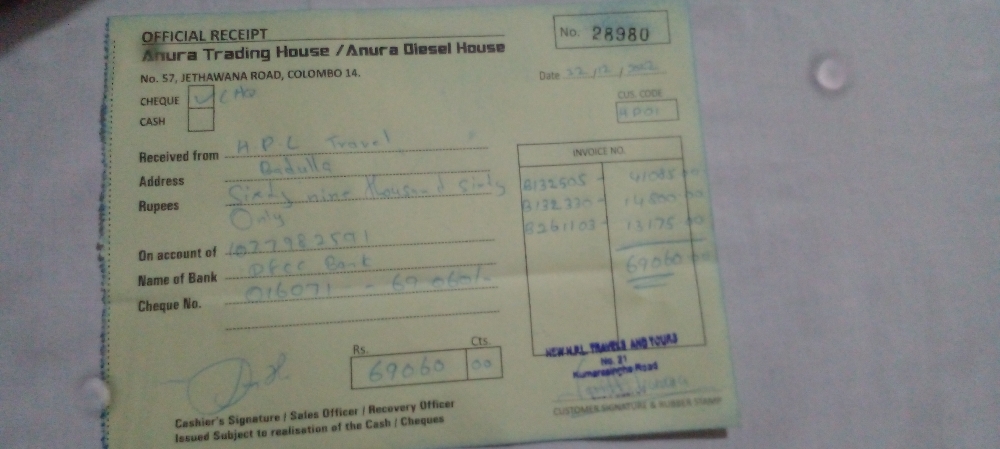 OFFICIAL RECEIPT
No. 28980
Anura Trading House / Anura Diesel House
No. 57, JETHAWANA ROAD, COLOMBO 14.
Date 22/12/2022
CHEQUE ✓
CASH
CUS. CODE
HP01
Received from H P L Travel
Address Badulla
Rupees Sixty nine thousand sixty
Only
On account of 1077982591
Name of Bank DFCC Bank
Cheque No. 016071 - 69060/-
INVOICE NO.
B132505 - 41085 00
B132330 - 14800 00
B261103 - 13175 00
69060 00
Rs. Cts.
69060 00
NEW H.P.L. TRAVELS AND TOURS
No. 21
Kumarasinghe Road
CUSTOMER SIGNATURE & RUBBER STAMP
Cashier's Signature / Sales Officer / Recovery Officer
Issued Subject to realisation of the Cash / Cheques